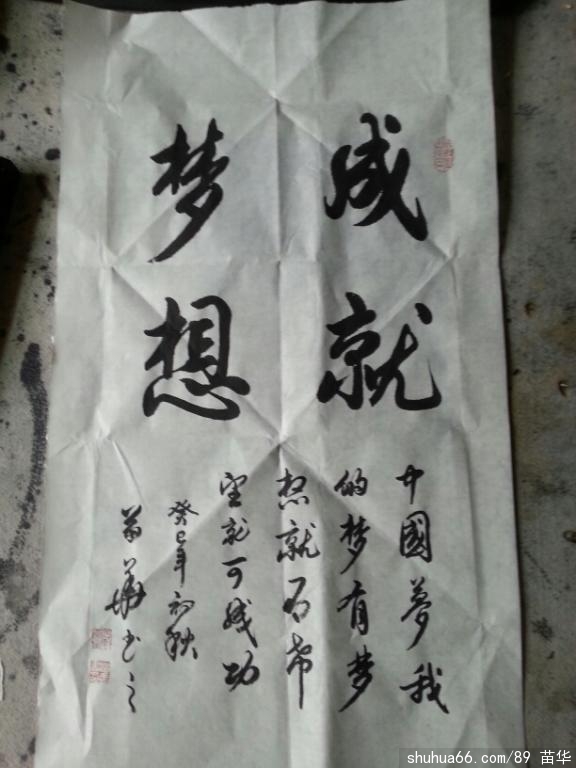 成就
梦想
中國夢我
的梦有梦
想就有希
望就可成功
癸巳年初秋
苗華书之
shuhua66.com/89 苗华